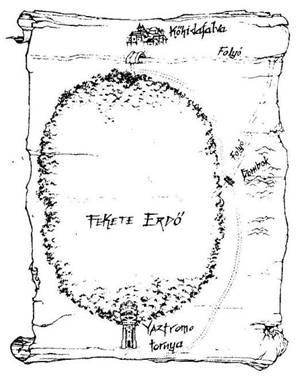 Kőhídfalva
Folyó
Folyó
Dombok
FEKETE ERDŐ
Yaztromo
tornya